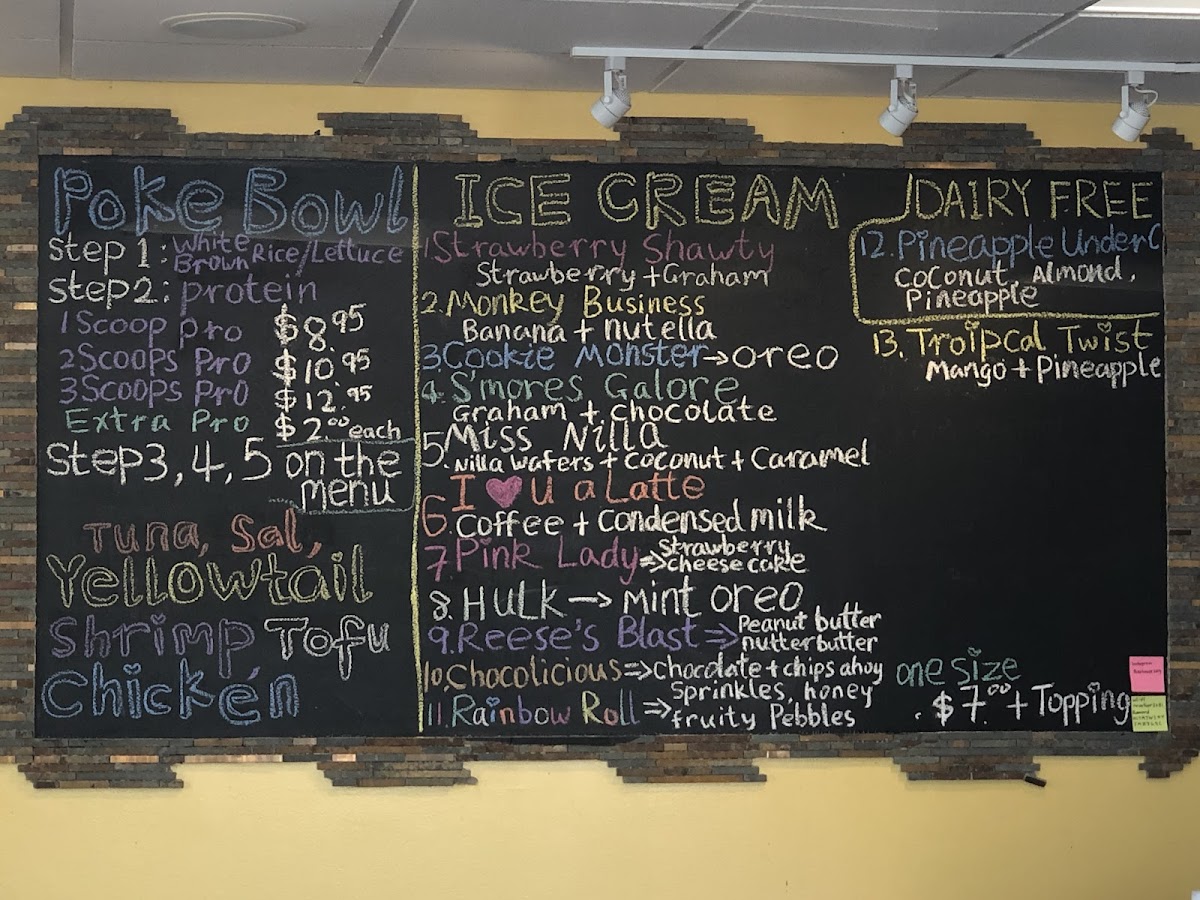 Poke Bowl
Step 1: White Brown Rice/Lettuce
Step 2: protein
1 Scoop pro $8.95
2 Scoops Pro $10.95
3 Scoops Pro $12.95
Extra Pro $2.00 each
Step 3, 4, 5 on the
menu
Tuna, Sal,
Yellowtail
Shrimp, Tofu
Chicken
ICE CREAM
1. Strawberry Shawty
Strawberry + Graham
2. Monkey Business
Banana + nutella
3. Cookie Monster → oreo
4. S'mores Galore
Graham + chocolate
5. Miss Nilla
Nilla wafers + coconut + Caramel
6. I ♥ u a Latte
Coffee + condensed milk
7. Pink Lady ⇒ Strawberry
cheese cake
8. HULK → mint oreo
9. Reese's Blast ⇒ Peanut butter
nutter butter
10. Chocolicious ⇒ Chocolate + chips ahoy
11. Rainbow Roll ⇒ Sprinkles, honey
fruity Pebbles
DAIRY FREE
12. Pineapple Under C
coconut, Almond,
Pineapple
13. Troipcal Twist
Mango + Pineapple
one size
$7.00 + Topping